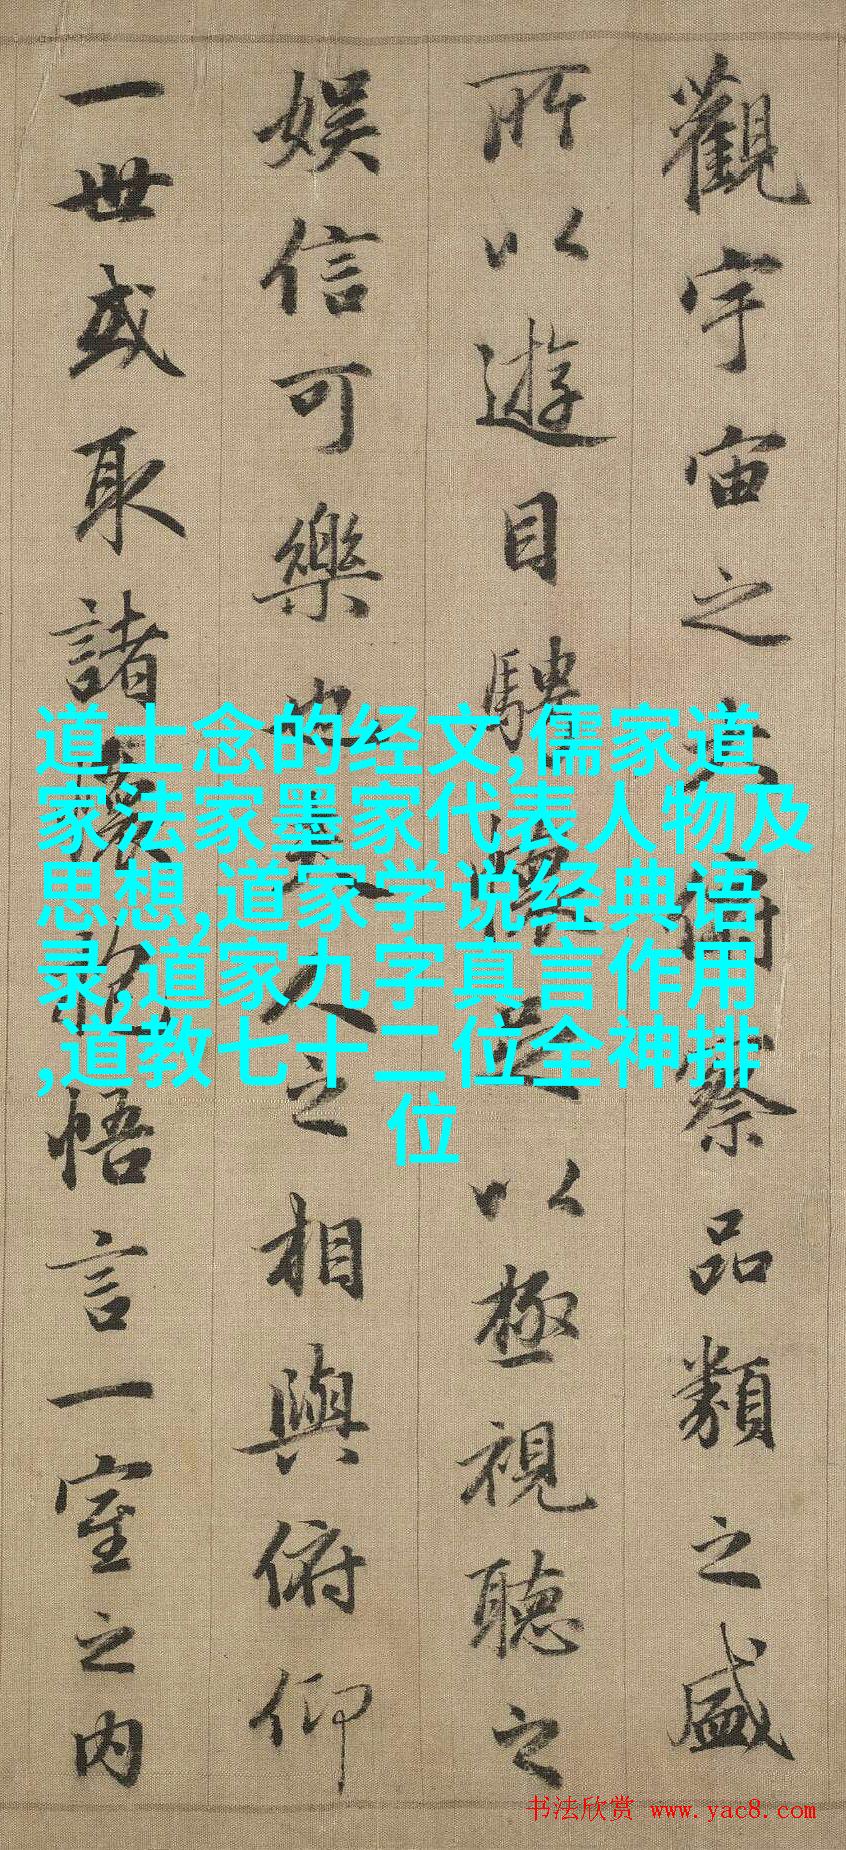 觀宇宙之大俯察品類之盛
所以遊目騁懷足以極視聽之
娛信可樂也夫人之相與俯仰
一世或取諸懷抱悟言一室之内
道士念的经文,儒家道
家法家墨家代表人物及
思想,道家学说经典语
录,道家九字真言作用
,道教七十二位全神排
位
书法欣赏 www.yac8.com